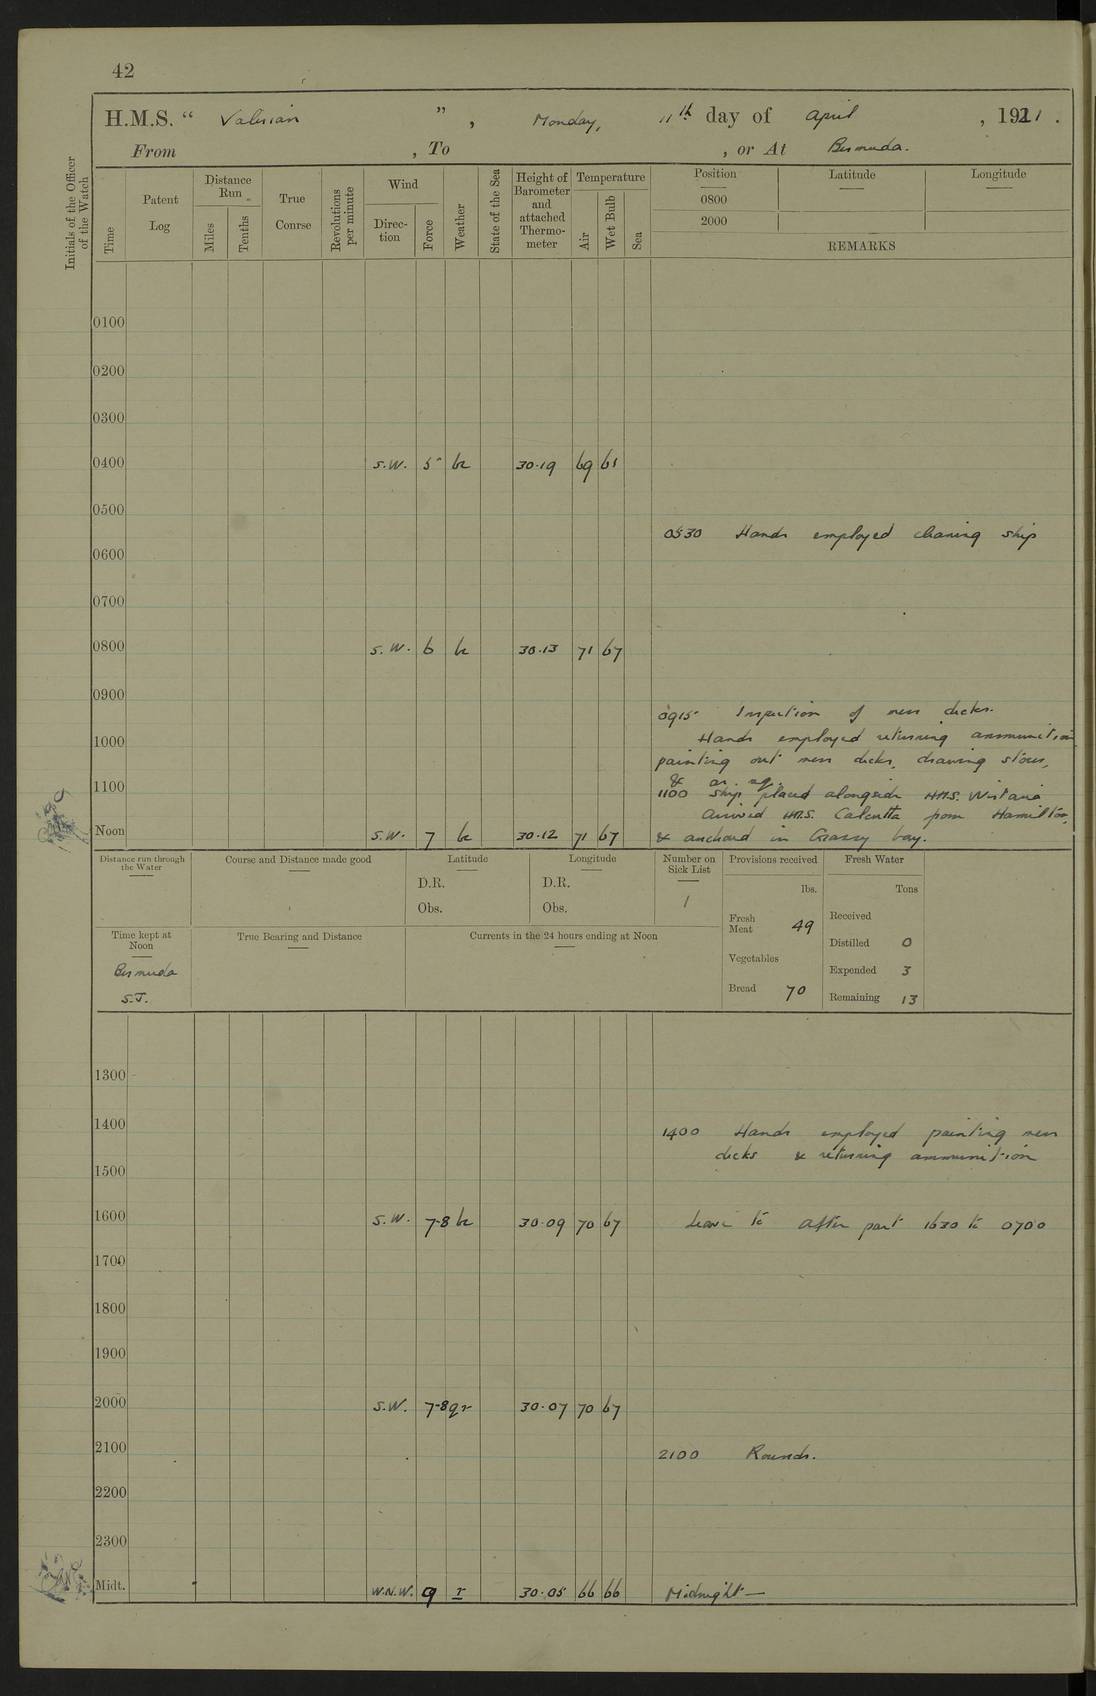 42
H.M.S. “ Valerian ” , Monday, 11th day of April , 1921 .
From , To , or At Bermuda.
Initials of the Officer of the Watch
Time
Patent Log
Distance Run
Miles
Tenths
True Course
Revolutions per minute
Wind
Direction
Force
Weather
State of the Sea
Height of Barometer and attached Thermometer
Temperature
Air
Wet Bulb
Sea
Position Latitude Longitude
0800
2000
REMARKS
0100
0200
0300
0400 S.W. 5 bc 30.19 69 65
0500
0530 Hands employed cleaning ship
0600
0700
0800 S.W. 6 bc 30.13 71 67
0900
0915 Inspection of mess decks.
Hands employed returning ammunition
1000
painting out mess decks, drawing stores,
& as req.
1100 1100 Ship placed alongside H.M.S. Wistaria
Arrived H.M.S. Calcutta from Hamilton,
Noon S.W. 7 bc 30.12 71 67 & anchored in Grassy bay.
Distance run through the Water
Course and Distance made good
Latitude
D.R.
Obs.
Longitude
D.R.
Obs.
Number on Sick List
1
Provisions received
lbs.
Fresh Meat 49
Vegetables
Bread 70
Fresh Water
Tons
Received
Distilled 0
Expended 3
Remaining 13
Time kept at Noon
Bermuda
S.T.
True Bearing and Distance
Currents in the 24 hours ending at Noon
1300
1400 1400 Hands employed painting mess
decks & returning ammunition
1500
1600 S.W. 7-8 bc 30.09 70 67 Leave to after part 1630 to 0700
1700
1800
1900
2000 S.W. 7-8 qr 30.07 70 67
2100 2100 Rounds.
2200
2300
Midt. W.N.W. 9 r 30.05 66 66 Midnight —